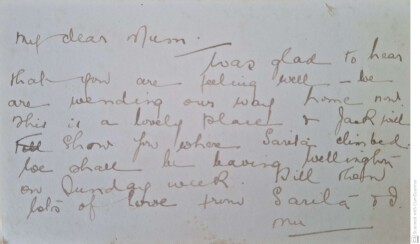 My dear Mum.
Was glad to hear
that you are feeling well - we
are wending our way home now.
This is a lovely place & Jack will
show you where Sarita climbed.
We shall be leaving Wellington
on Sunday week. Till then
lots of love from Sarita &